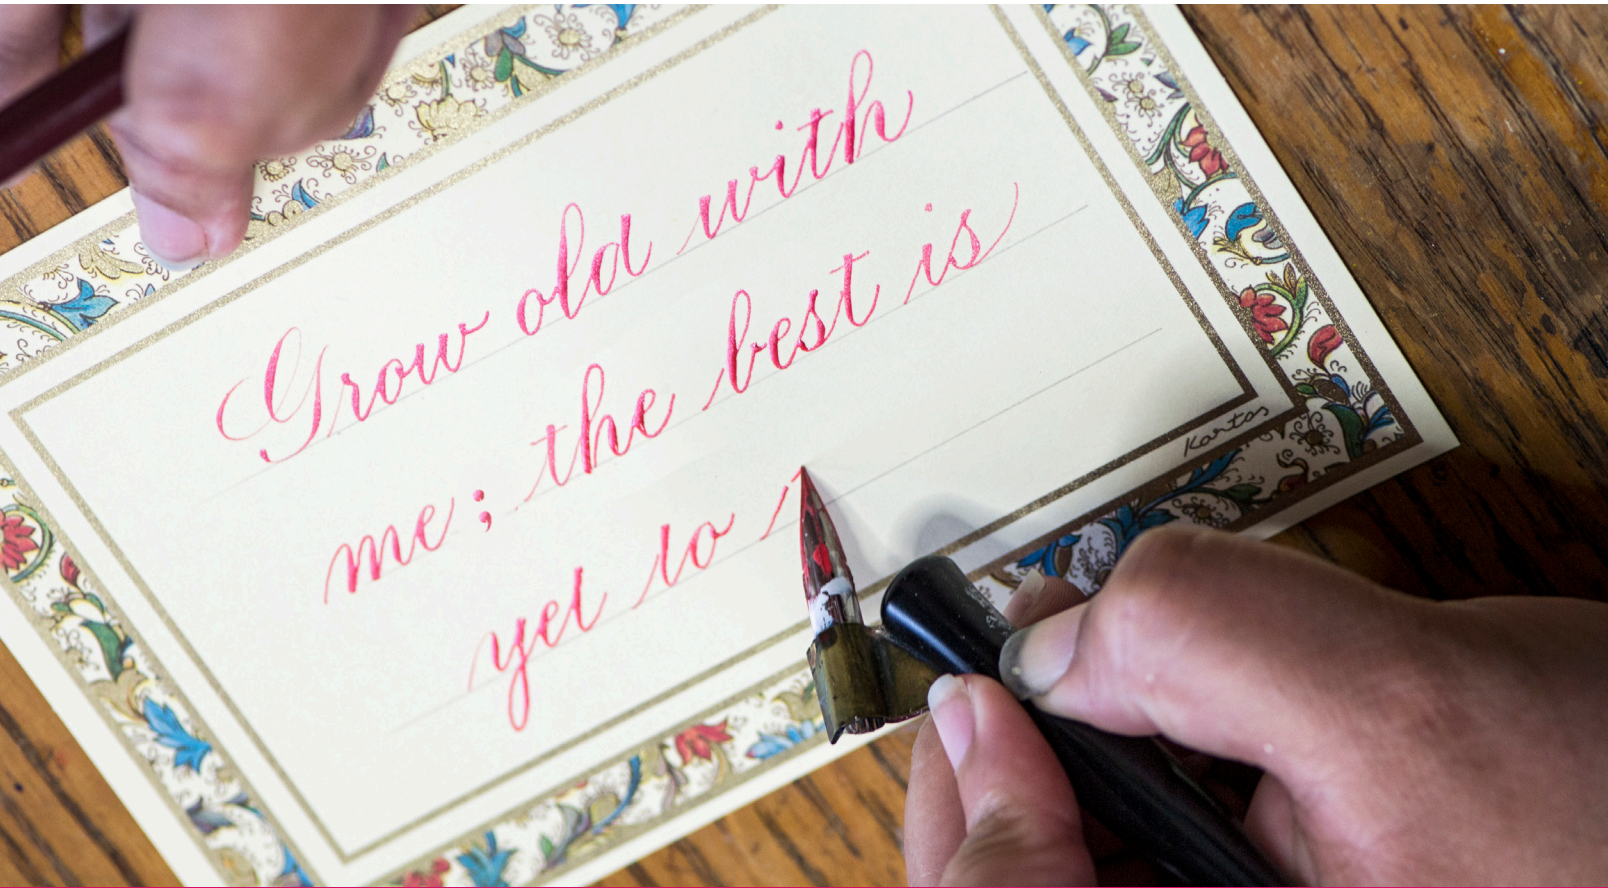 Grow old with
me; the best is
yet to
Kartos